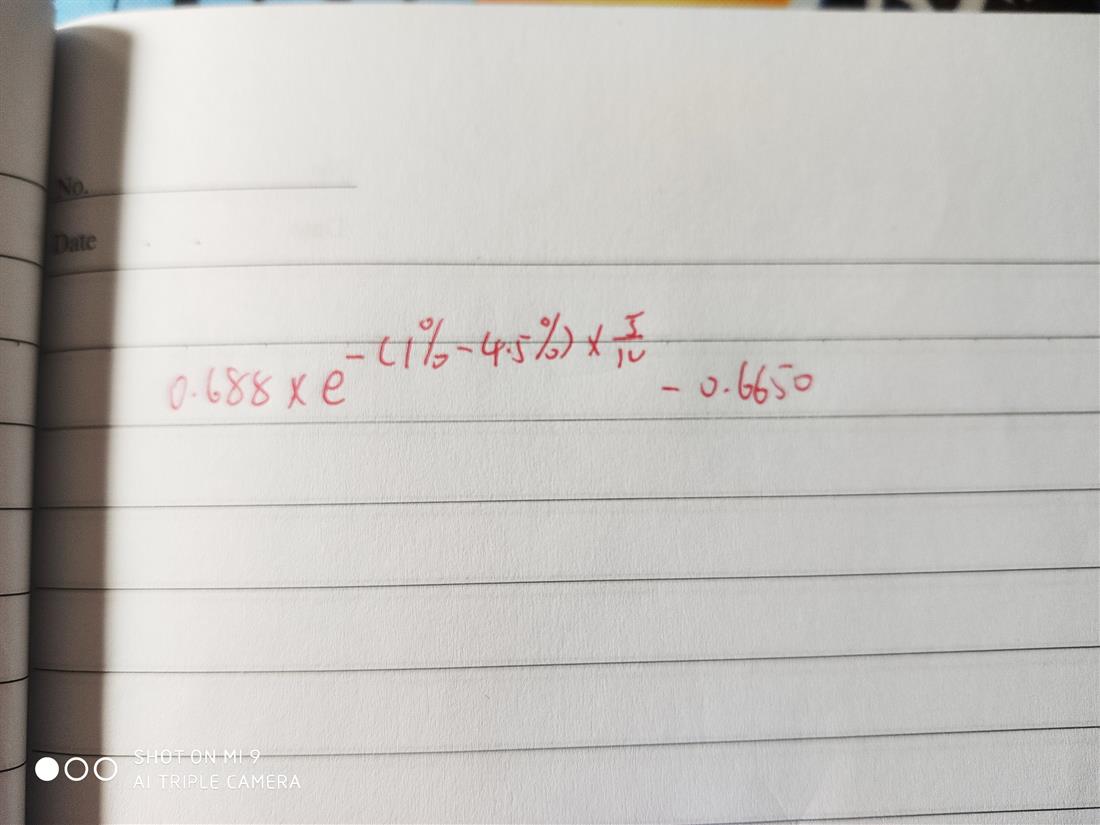 No.
Date
0.688 × e^{-(1% - 4.5%) × \frac{5}{12}} - 0.6650
SHOT ON MI 9
AI TRIPLE CAMERA